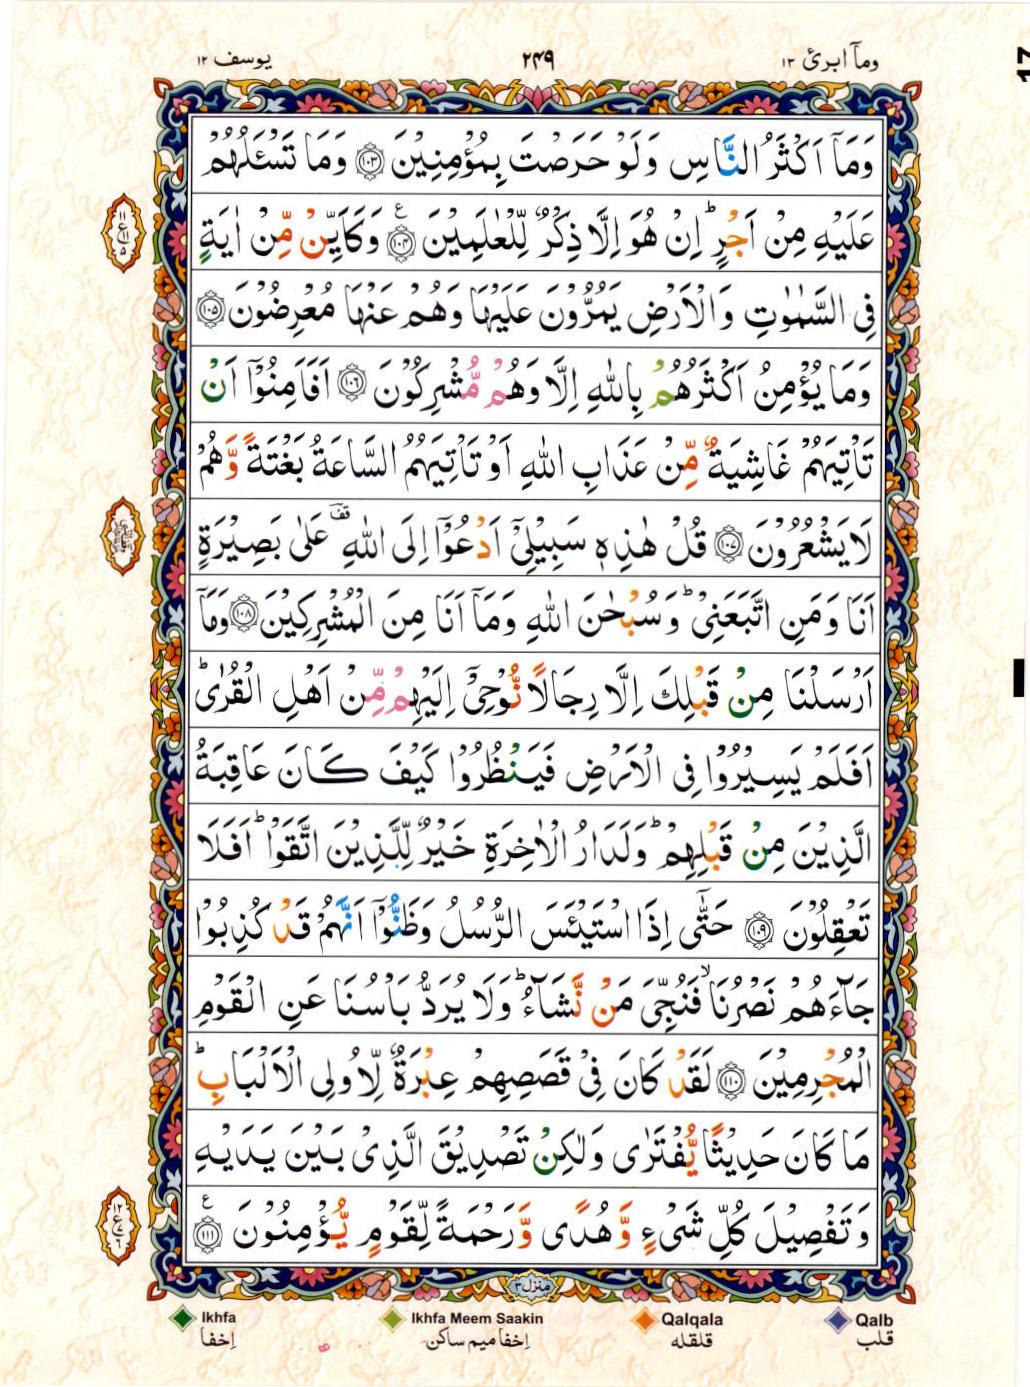 وماۤ ابرئ ۱۳
۲۴۹
یوسف ۱۲
وَمَاۤ اَكْثَرُ النَّاسِ وَلَوْ حَرَصْتَ بِمُؤْمِنِيْنَ ﴿۱۰۳﴾ وَمَا تَسْـَٔلُهُمْ
عَلَيْهِ مِنْ اَجْرٍ ؕ اِنْ هُوَ اِلَّا ذِكْرٌ لِّلْعٰلَمِيْنَ ﴿۱۰۴﴾ ع وَكَاَيِّنْ مِّنْ اٰيَةٍ
فِى السَّمٰوٰتِ وَالْاَرْضِ يَمُرُّوْنَ عَلَيْهَا وَهُمْ عَنْهَا مُعْرِضُوْنَ ﴿۱۰۵﴾
وَمَا يُؤْمِنُ اَكْثَرُهُمْ بِاللّٰهِ اِلَّا وَهُمْ مُّشْرِكُوْنَ ﴿۱۰۶﴾ اَفَاَمِنُوْۤا اَنْ
تَاْتِيَهُمْ غَاشِيَةٌ مِّنْ عَذَابِ اللّٰهِ اَوْ تَاْتِيَهُمُ السَّاعَةُ بَغْتَةً وَّهُمْ
لَا يَشْعُرُوْنَ ﴿۱۰۷﴾ قُلْ هٰذِهٖ سَبِيْلِىْۤ اَدْعُوْۤا اِلَى اللّٰهِ قف عَلٰى بَصِيْرَةٍ
اَنَا وَمَنِ اتَّبَعَنِىْ ؕ وَسُبْحٰنَ اللّٰهِ وَمَاۤ اَنَا مِنَ الْمُشْرِكِيْنَ ﴿۱۰۸﴾ وَمَاۤ
اَرْسَلْنَا مِنْ قَبْلِكَ اِلَّا رِجَالًا نُّوْحِىْۤ اِلَيْهِمْ مِّنْ اَهْلِ الْقُرٰى ؕ
اَفَلَمْ يَسِيْرُوْا فِى الْاَرْضِ فَيَنْظُرُوْا كَيْفَ كَانَ عَاقِبَةُ
الَّذِيْنَ مِنْ قَبْلِهِمْ ؕ وَلَدَارُ الْاٰخِرَةِ خَيْرٌ لِّلَّذِيْنَ اتَّقَوْا ؕ اَفَلَا
تَعْقِلُوْنَ ﴿۱۰۹﴾ حَتّٰۤى اِذَا اسْتَيْـَٔسَ الرُّسُلُ وَظَنُّوْۤا اَنَّهُمْ قَدْ كُذِبُوْا
جَآءَهُمْ نَصْرُنَا ۙ فَنُجِّىَ مَنْ نَّشَآءُ ؕ وَلَا يُرَدُّ بَاْسُنَا عَنِ الْقَوْمِ
الْمُجْرِمِيْنَ ﴿۱۱۰﴾ لَقَدْ كَانَ فِىْ قَصَصِهِمْ عِبْرَةٌ لِّاُولِى الْاَلْبَابِ ؕ
مَا كَانَ حَدِيْثًا يُّفْتَرٰى وَلٰكِنْ تَصْدِيْقَ الَّذِىْ بَيْنَ يَدَيْهِ
وَتَفْصِيْلَ كُلِّ شَىْءٍ وَّهُدًى وَّرَحْمَةً لِّقَوْمٍ يُّؤْمِنُوْنَ ﴿۱۱۱﴾ ع
منزل ۳
Ikhfa
Ikhfa Meem Saakin
Qalqala
Qalb
اِخفا
اِخفا میم ساکن
قلقله
قلب
17